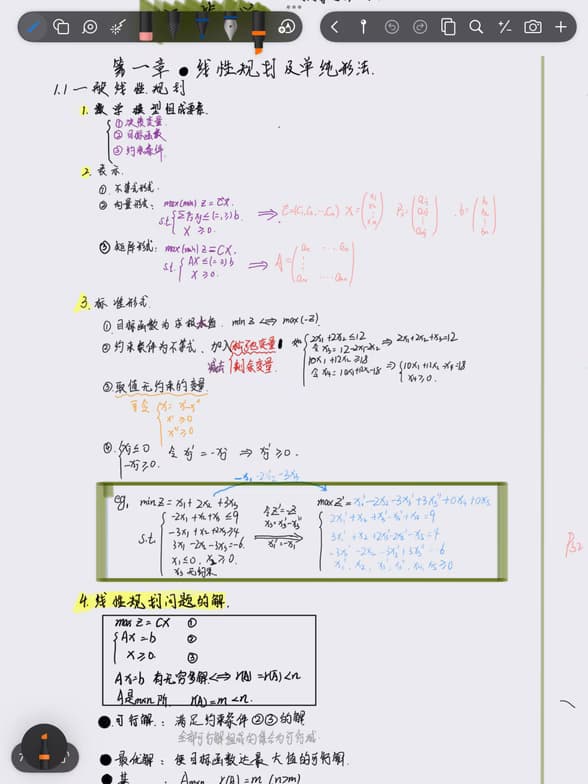 第一章 线性规划及单纯形法.
1.1 一般线性规划
1. 数学模型组成要素.
① 决策变量
② 目标函数
③ 约束条件
2. 表示.
① 不等式形式.
② 向量形式: max(min) z = CX.
X ≥ 0.
③ 矩阵形式: max(min) z = CX.
s.t. { AX ≤ (=, ≥) b
X ≥ 0.
3. 标准形式
① 目标函数为求极大值. min z ⟺ max(-z)
② 约束条件为不等式. 加入 松弛变量
减去 剩余变量
如 2x₁+2x₂≤12
令 x₃=12-2x₁-2x₂ ⇒ 2x₁+2x₂+x₃=12
10x₁+12x₂≥18
令 x₄=10x₁+12x₂-18 ⇒ 10x₁+12x₂-x₄=18
x₄≥0.
③ 取值无约束的变量.
可令 x = x'-x''
x' ≥ 0
x'' ≥ 0
④ xj ≤ 0
-xj ≥ 0. 令 xj' = -xj ⇒ xj' ≥ 0.
-x₁-2x₂-3x₃
eg, min z = x₁+2x₂+3x₃
-2x₁+x₂+x₃≤9
-3x₁+x₂+2x₃≥4
3x₁-2x₂-3x₃=-6.
s.t.
x₁≤0, x₂≥0.
x₃ 无约束
令 z'=-z
x₃=x₃'-x₃''
x₁'=-x₁
max z' = x₁'-2x₂-3x₃'+3x₃''+0x₄+0x₅
2x₁'+x₂+x₃'-x₃''+x₄=9
3x₁'+x₂+2x₃'-2x₃''-x₅=4
-3x₁'-2x₂-3x₃'+3x₃''=-6
x₁', x₂, x₃', x₃'', x₄, x₅≥0
4. 线性规划问题的解.
max z = CX ①
AX = b ②
X ≥ 0 ③
AX=b 有无穷多解 ⟺ r(A)=r(Ā)<n
A是m×n阶. r(A)=m<n.
● 可行解: 满足约束条件②③的解
全部可行解组成的集合为可行域
● 最优解: 使目标函数达最大值的可行解.
● 基: Am×n r(A)=m (n>m)